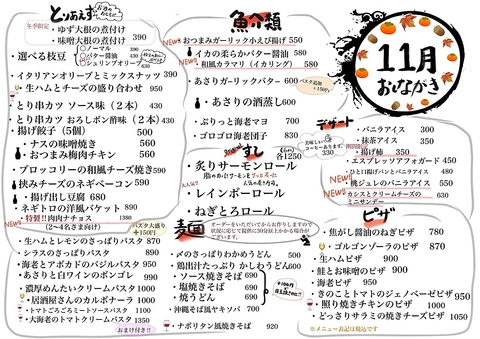 11月
おながき
とりあえず
冬季限定
・ゆず大根の煮付け 390
・味噌大根の煮付け 390
・選べる枝豆
○ノーマル 390
○バター醤油
○シュリンプオリーブ 630
・イタリアンオリーブとミックスナッツ 390
・生ハムとチーズの盛り合わせ 950
・とり串カツ ソース味(2本) 430
・とり串カツ おろしポン酢味(2本) 430
・揚げ餃子(5個) 500
・ナスの味噌焼き 560
・おつまみ梅肉チキン 560
・ブロッコリーの和風チーズ焼き 590
・挟みチーズのネギベーコン 590
・揚げ出し豆腐 680
・ネギトロの洋風バケット 890
NEW!!
・特製!!肉肉ナチョス 1380
(2〜4名さま向け)
パスタ大盛り
+150円
・生ハムとレモンのさっぱりパスタ 870
・シラスのさっぱりパスタ 890
・海老とアボカドのバジルパスタ 950
・あさりと白ワインのボンゴレ 990
・濃厚めんたいクリームパスタ 1050
・居酒屋さんのカルボナーラ 1090
・トマトごろごろミートソースパスタ 1350
・大海老のトマトクリームパスタ 1350
おまけ付き!!
魚介類
・おつまみガーリック小えび揚げ 550
・イカの柔らかバター醤油 580
NEW!!
・和風カラマリ(イカリング) 580
・あさりガーリックバター 600
パスタ追加
+150円
・あさりの酒蒸し 600
・ぷりっと海老マヨ 700
・ゴロゴロ海老団子 830
すし
各1250
・炙りサーモンロール
人気!!
・レインボーロール
・ねぎとろロール
麺
オーダーをいただいてからお作りしますので
状況に応じて提供に30分以上かかる場合が
ございます。
・〆のさっぱりわかめうどん 500
・鶏出汁たっぷり かしわうどん 600
・ソース焼きそば 690
・塩焼きそば 690
・焼うどん 690
・沖縄そば風ヤキソバ 700
・ナポリタン風焼きそば 920
デザート
・バニラアイス 300
・抹茶アイス 350
・揚げ柿 350
・エスプレッソアフォガード 450
・ひと口揚げパンとバニラアイス 450
NEW!!
・桃ジュレのバニラアイス 550
NEW!!
・カシスとクリームチーズの
ミニサンデー 650
ピザ
・焦がし醤油のねぎピザ 780
・ゴルゴンゾーラのピザ 950
・生ハムピザ 950
・鮭とお味噌のピザ 950
・海老ピザ 950
・きのことトマトのジェノベーゼピザ 950
・照り焼きチキンのピザ 1090
・どっさりサラミの焼きチーズピザ 1050
※メニュー表記は税込です